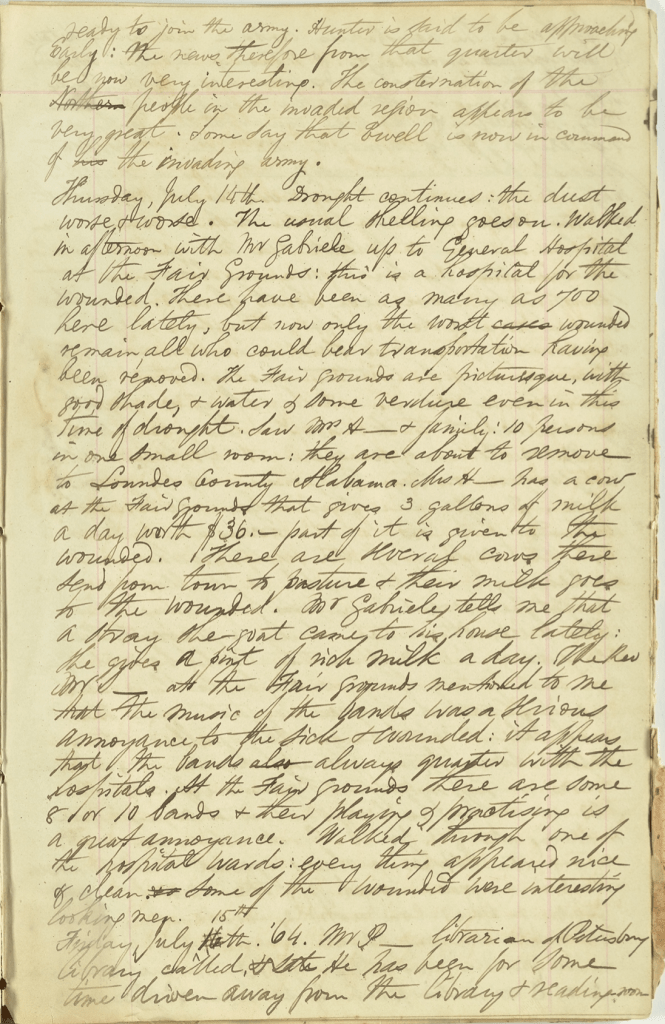 ready to join the army. Hunter is said to be approaching
Early: the news therefore from that quarter will
be now very interesting. The consternation of the
Northern people in the invaded region appears to be
very great. Some say that Ewell is now in command
of his the invading army.
Thursday, July 14th. Drought continues: the dust
worse & worse. The usual shelling goes on. Walked
in afternoon with Mr Gabriele up to General Hospital
at the Fair Grounds: this is a hospital for the
wounded. There have been as many as 700
here lately, but now only the worst cases wounded
remain all who could bear transportation having
been removed. The Fair grounds are picturesque, with
good shade, & water & some verdure even in this
time of drought. Saw Mrs H— & family: 10 persons
in one small room: they are about to remove
to Lowndes County Alabama. Mrs H— has a cow
at the Fair grounds that gives 3 gallons of milk
a day worth $36.— part of it is given to the
wounded. There are several cows there
send from town to pasture & their milk goes
to the wounded. Mr Gabriele tells me that
a stray she-goat came to his house lately:
she gives a pint of rich milk a day. The Rev
Mr — at the Fair grounds mentioned to me
that the music of the bands was a serious
annoyance to the sick & wounded: it appears
that the bands also always quarter with the
hospitals. At the Fair grounds there are some
8 or 10 bands & their playing & practising is
a great annoyance. Walked through one of
the hospital wards: every thing appeared nice
& clean so some of the wounded were interesting
looking men. 15th
Friday, July 16th. '64. Mr P— librarian of Petersburg
library called, & He has been for some
time driven away from the library & reading room